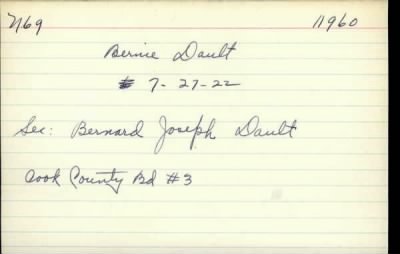 N69 11960
Bernie Dault
7-27-22
See: Bernard Joseph Dault
Cook County Bd #3